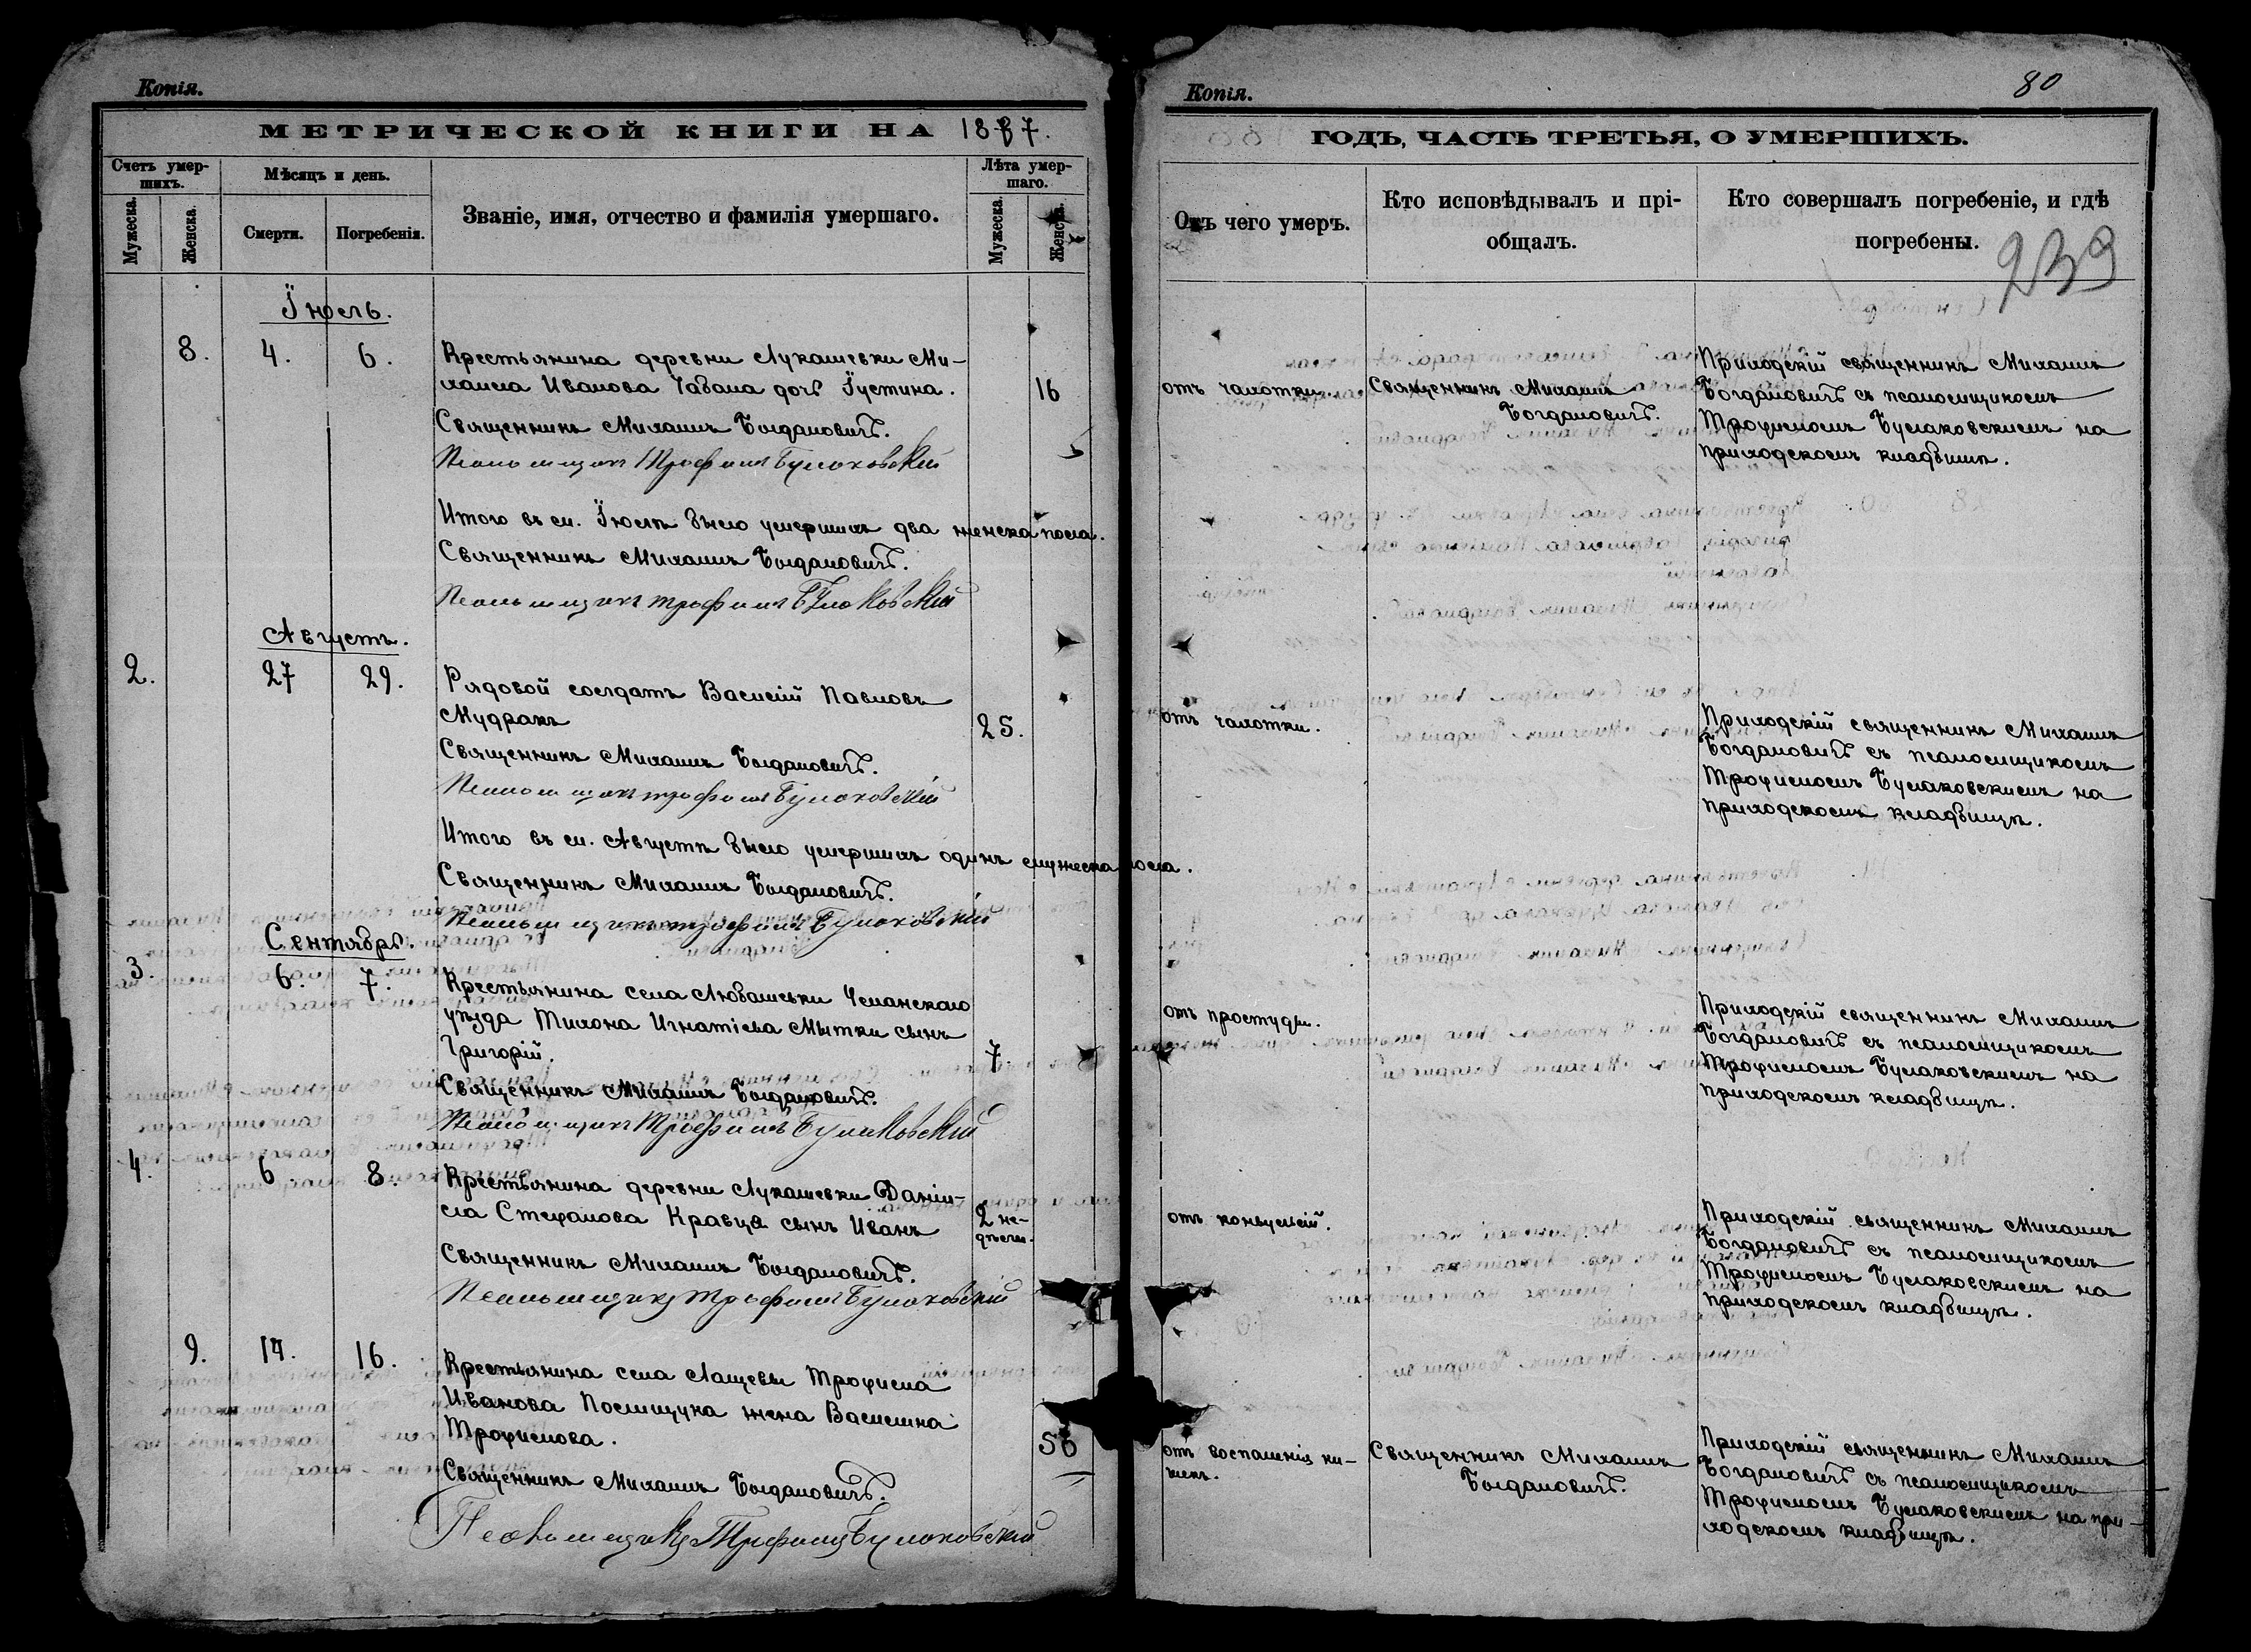 Копія.
МЕТРИЧЕСКОЙ КНИГИ НА 1887.
Счетъ умер-
шихъ.
Мѣсяцъ и день.
Званіе, имя, отчество и фамилія умершаго.
Лѣта умер-
шаго.
Мужеска.
Женска.
Смерти.
Погребенія.
Мужеска.
Женска.
Іюль.
8. 4. 6. Крестьянина деревни Лукашевки Ми-
хаила Иванова Чабана дочь Іустина. 16
Священникъ Михаилъ Богдановичъ.
Псаломщикъ Трофимъ Булаховскій
Итого въ м. Іюлѣ было умершихъ два женска пола.
Священникъ Михаилъ Богдановичъ.
Псаломщикъ Трофимъ Булаховскій
Августъ.
2. 27 29. Рядовой солдатъ Василій Павловъ
Мудракъ 25.
Священникъ Михаилъ Богдановичъ.
Псаломщикъ Трофимъ Булаховскій
Итого въ м. Августѣ было умершихъ одинъ мужеска пола.
Священникъ Михаилъ Богдановичъ.
Псаломщикъ Трофимъ Булаховскій
Сентябрь.
3. 6. 7. Крестьянина села Любашевки Уманскаго
уѣзда Тихона Игнатіева Мытки сынъ
Григорій. 7.
Священникъ Михаилъ Богдановичъ.
Псаломщикъ Трофимъ Булаховскій
4. 6 8. Крестьянина деревни Лукашевки Даніи-
ла Стефанова Кравца сынъ Иванъ 2 не-
дѣли.
Священникъ Михаилъ Богдановичъ.
Псаломщикъ Трофимъ Булаховскій
9. 14. 16. Крестьянина села Лащевы Трофима
Иванова Полищука жена Василина
Трофимова. 50
Священникъ Михаилъ Богдановичъ.
Псаломщикъ Трофимъ Булаховскій
Копія.
80
ГОДЪ, ЧАСТЬ ТРЕТЬЯ, О УМЕРШИХЪ.
Отъ чего умеръ.
Кто исповѣдывалъ и прі-
общалъ.
Кто совершалъ погребеніе, и гдѣ
погребены.
239
отъ чахотки.
Священникъ Михаилъ
Богдановичъ.
Приходскій священникъ Михаилъ
Богдановичъ съ псаломщикомъ
Трофимомъ Булаховскимъ на
приходскомъ кладбищѣ.
отъ чахотки.
Приходскій священникъ Михаилъ
Богдановичъ съ псаломщикомъ
Трофимомъ Булаховскимъ на
приходскомъ кладбищѣ.
отъ простуды.
Приходскій священникъ Михаилъ
Богдановичъ съ псаломщикомъ
Трофимомъ Булаховскимъ на
приходскомъ кладбищѣ.
отъ конвульсій.
Приходскій священникъ Михаилъ
Богдановичъ съ псаломщикомъ
Трофимомъ Булаховскимъ на
приходскомъ кладбищѣ.
отъ воспаленія ки-
шекъ.
Священникъ Михаилъ
Богдановичъ.
Приходскій священникъ Михаилъ
Богдановичъ съ псаломщикомъ
Трофимомъ Булаховскимъ на при-
ходскомъ кладбищѣ.